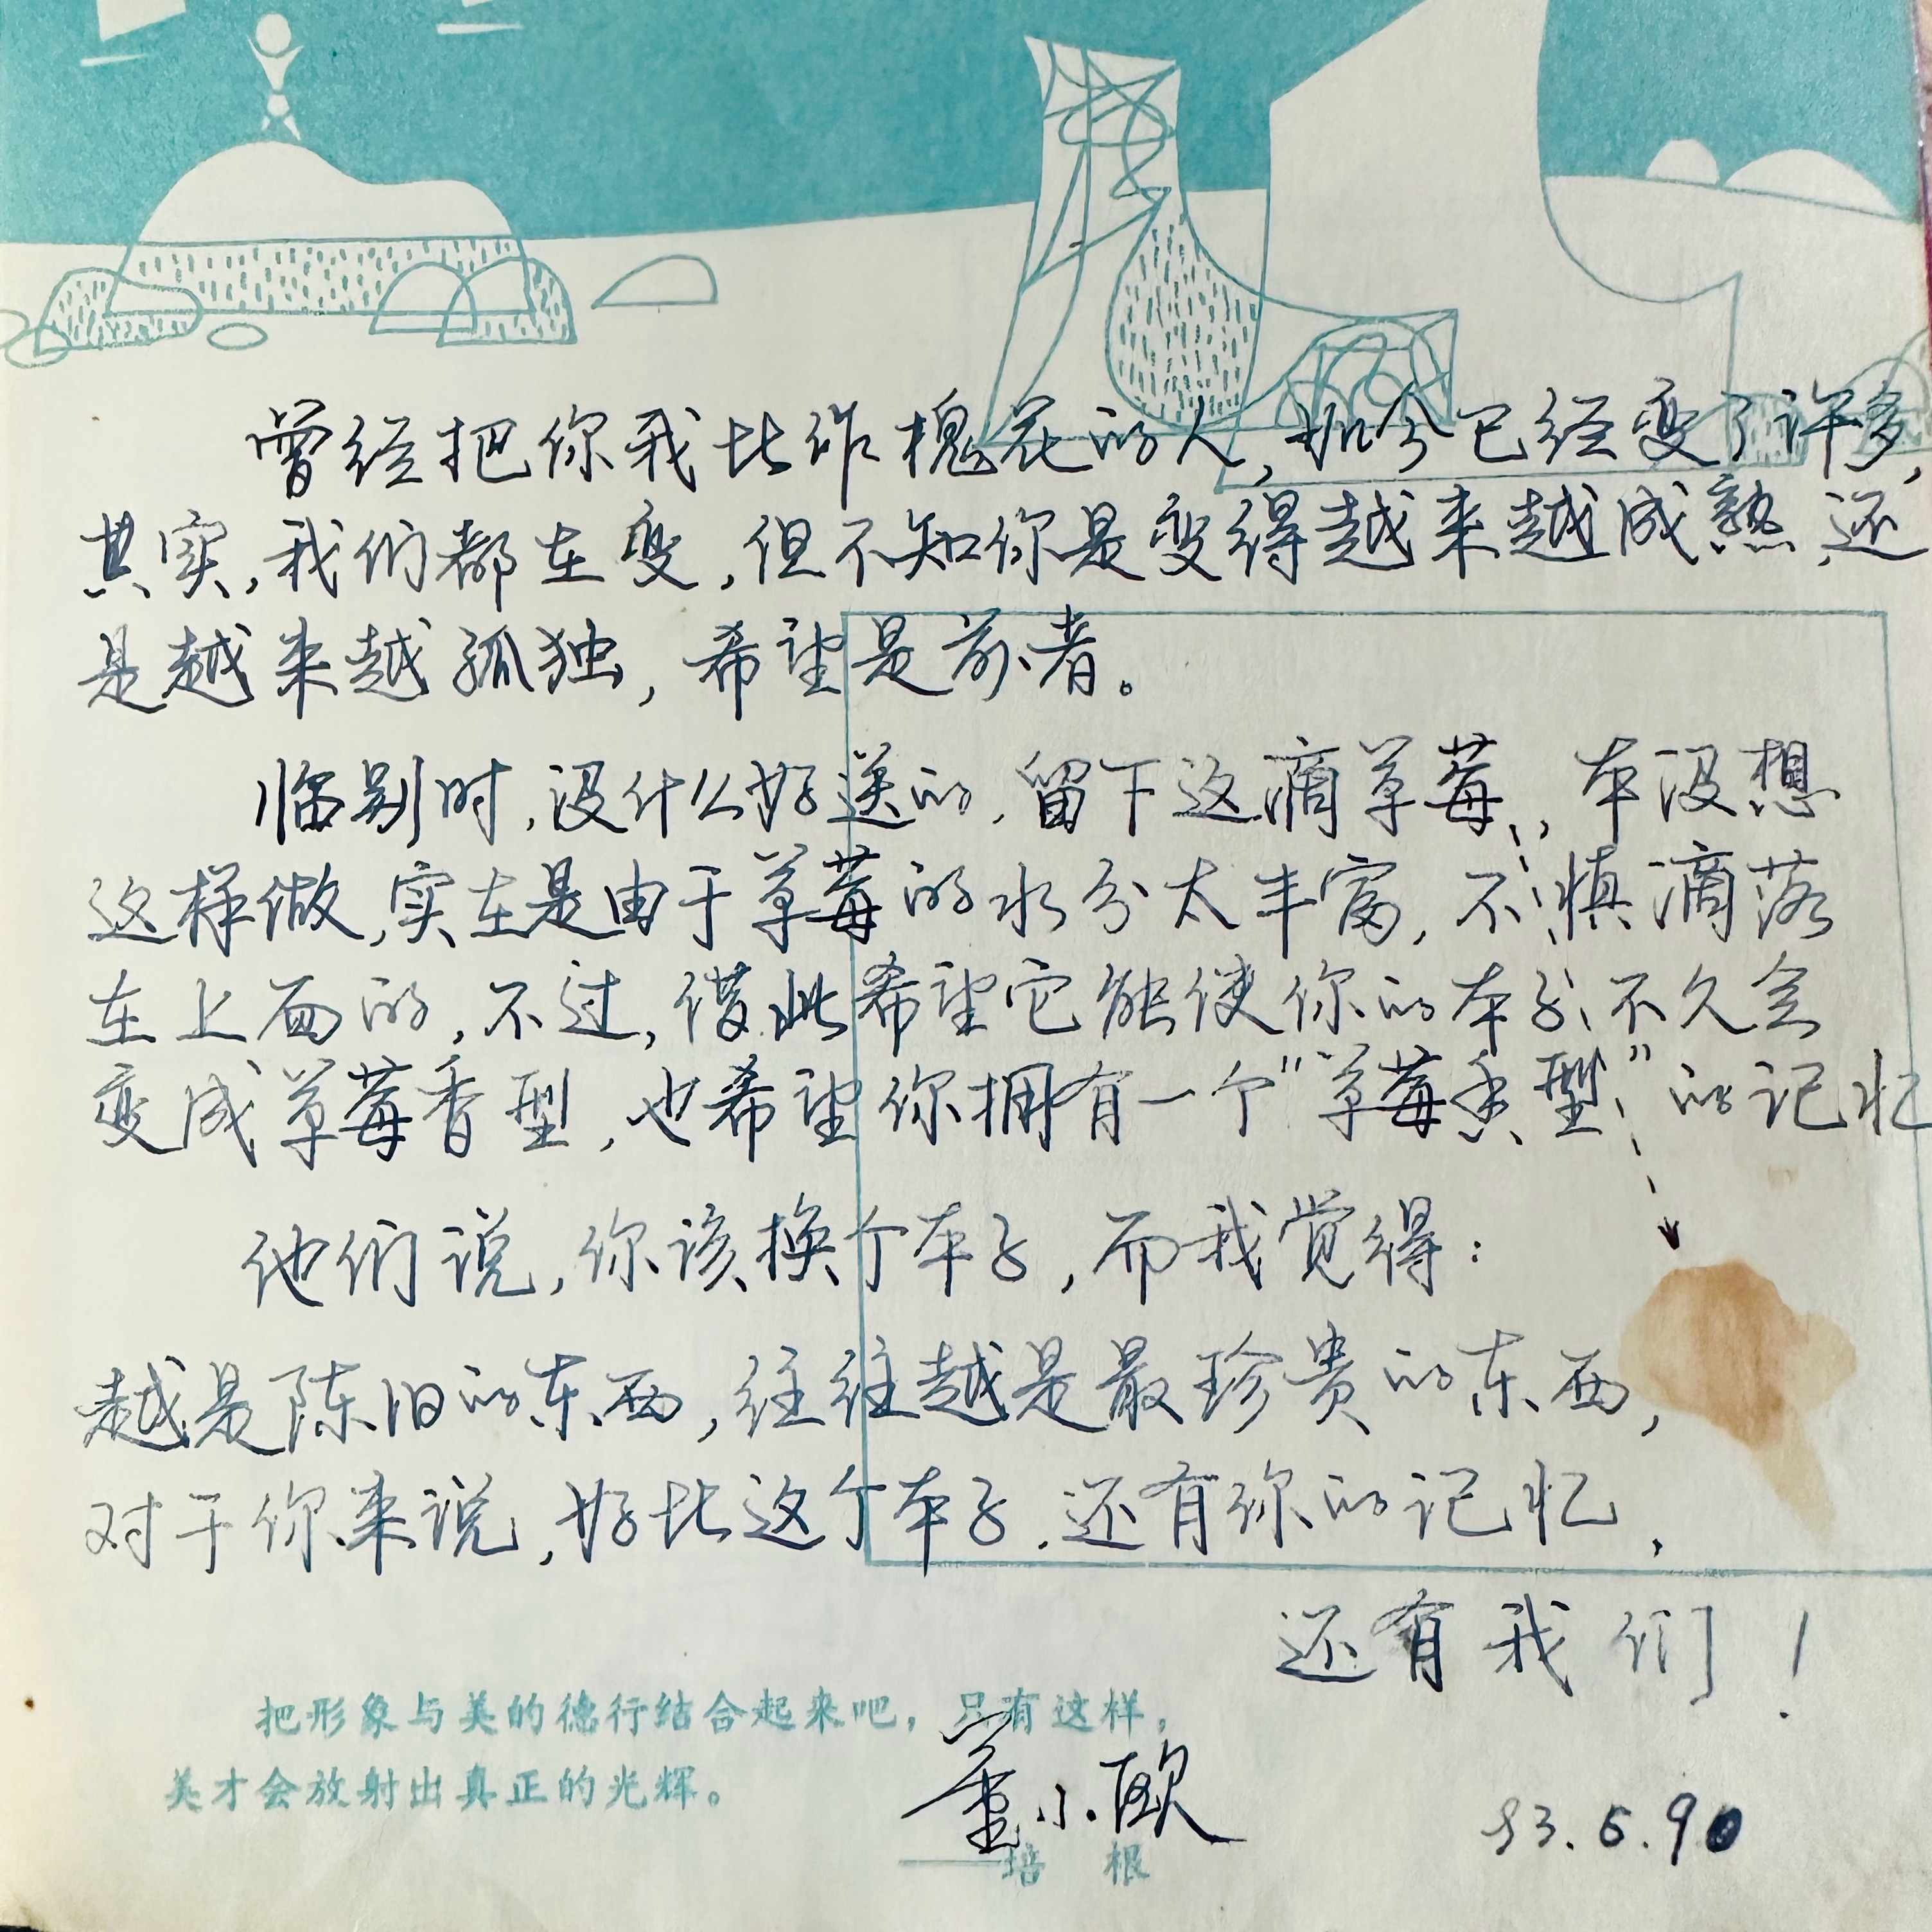 曾经把你我比作槐花的人,如今已经变了许多,
其实,我们都在变,但不知你是变得越来越成熟,还
是越来越孤独,希望是前者。
临别时,没什么好送的,留下这滴草莓,本没想
这样做,实在是由于草莓的水分太丰富,不慎滴落
在上面的,不过,借此希望它能使你的本子不久会
变成草莓香型,也希望你拥有一个“草莓香型”的记忆
他们说,你该换个本子,而我觉得:
越是陈旧的东西,往往越是最珍贵的东西,
对于你来说,好比这个本子.还有你的记忆,
还有我们!
把形象与美的德行结合起来吧,只有这样,
美才会放射出真正的光辉。
董小欧
——培根
93.6.9